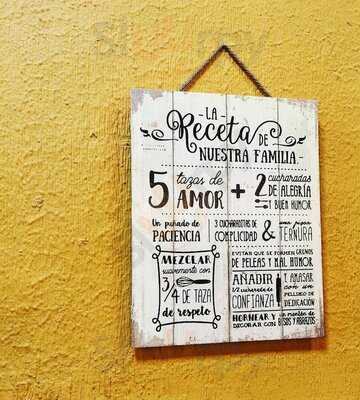 - LA -
Receta DE
NUESTRA FAMILIA.
5 tazas de AMOR
+
2 cucharadas
DE ALEGRÍA
Y BUEN HUMOR
Un puñado de
PACIENCIA
3 CUCHARADITAS DE
COMPLICIDAD
&
una pizca
TERNURA
MEZCLAR
suavemente con
3/4 DE TAZA
de respeto
EVITAR QUE SE FORMEN GRUMOS
DE PELEAS Y MAL HUMOR
AÑADIR
1/2 cucharada de
CONFIANZA
Y AMASAR
CON UN
PELLIZCO DE
DEDICACIÓN
HORNEAR Y
DECORAR CON
un montón de
BESOS Y ABRAZOS